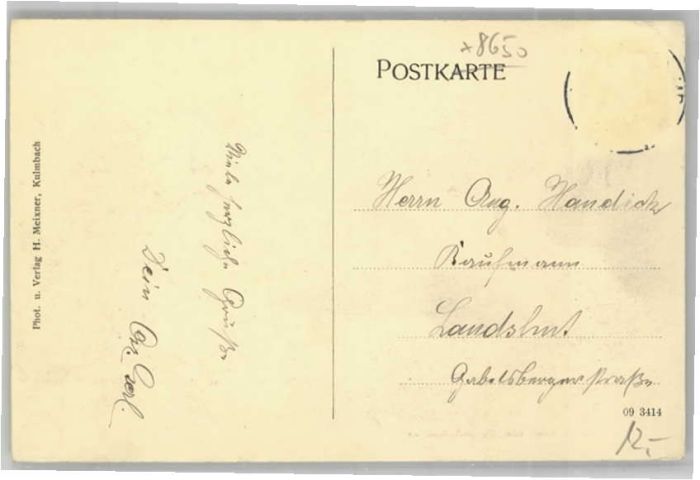 Phot. u. Verlag H. Meixner, Kulmbach
Viele herzliche Grüße
Dein
Carl.
×8650
POSTKARTE
Herrn Aug. Handick
Kaufmann
Landshut
Gabelsbergerstraße
09 3414
12,-